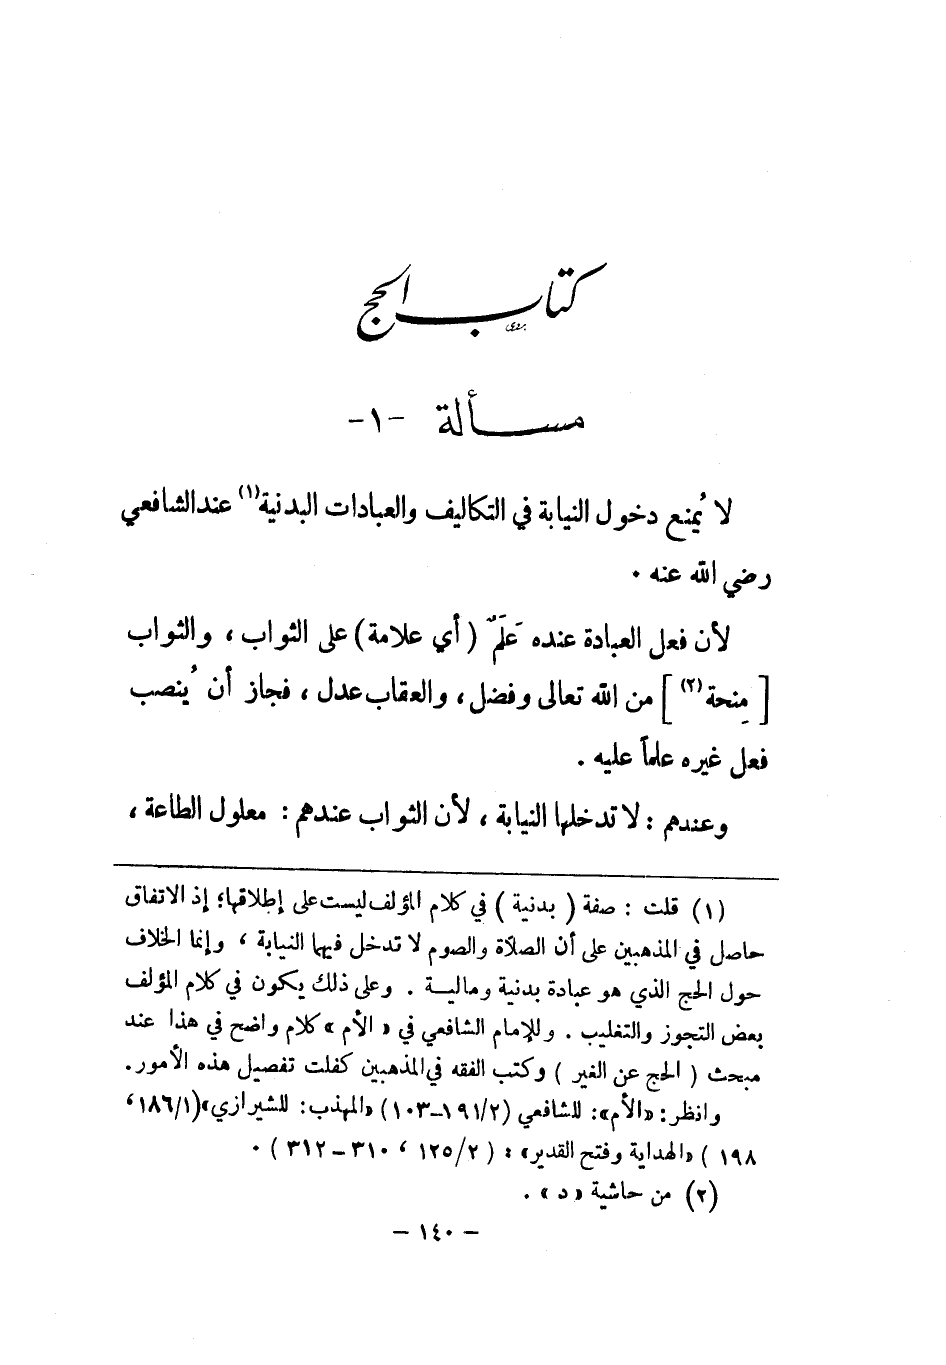 كتاب الحج
مسألة -١-
لا يُمنع دخول النيابة في التكاليف والعبادات البدنية(١) عند الشافعي
رضي الله عنه .
لأن فعل العبادة عنده عَلَمٌ ( أي علامة ) على الثواب ، والثواب
[ مِنحة(٢) ] من الله تعالى وفضل ، والعقاب عدل ، فجاز أن يُنصب
فعل غيره علماً عليه .
وعندهم : لا تدخلها النيابة ، لأن الثواب عندهم : معلول الطاعة ،
(١) قلت : صفة ( بدنية ) في كلام المؤلف ليست على إطلاقها؛ إذ الاتفاق
حاصل في المذهبين على أن الصلاة والصوم لا تدخل فيها النيابة ، وإنما الخلاف
حول الحج الذي هو عبادة بدنية ومالية . وعلى ذلك يكون في كلام المؤلف
بعض التجوز والتغليب . وللإمام الشافعي في «الأم» كلام واضح في هذا عند
مبحث ( الحج عن الغير ) وكتب الفقه في المذهبين كفلت تفصيل هذه الأمور.
وانظر: «الأم»: للشافعي (١٩١/٢-١٠٣) «المهذب: للشيرازي» (١٨٦/١،
١٩٨ ) «الهداية وفتح القدير» : ( ١٢٥/٢ ، ٣١٠ - ٣١٢ ) .
(٢) من حاشية « د » .
- ١٤٠ -